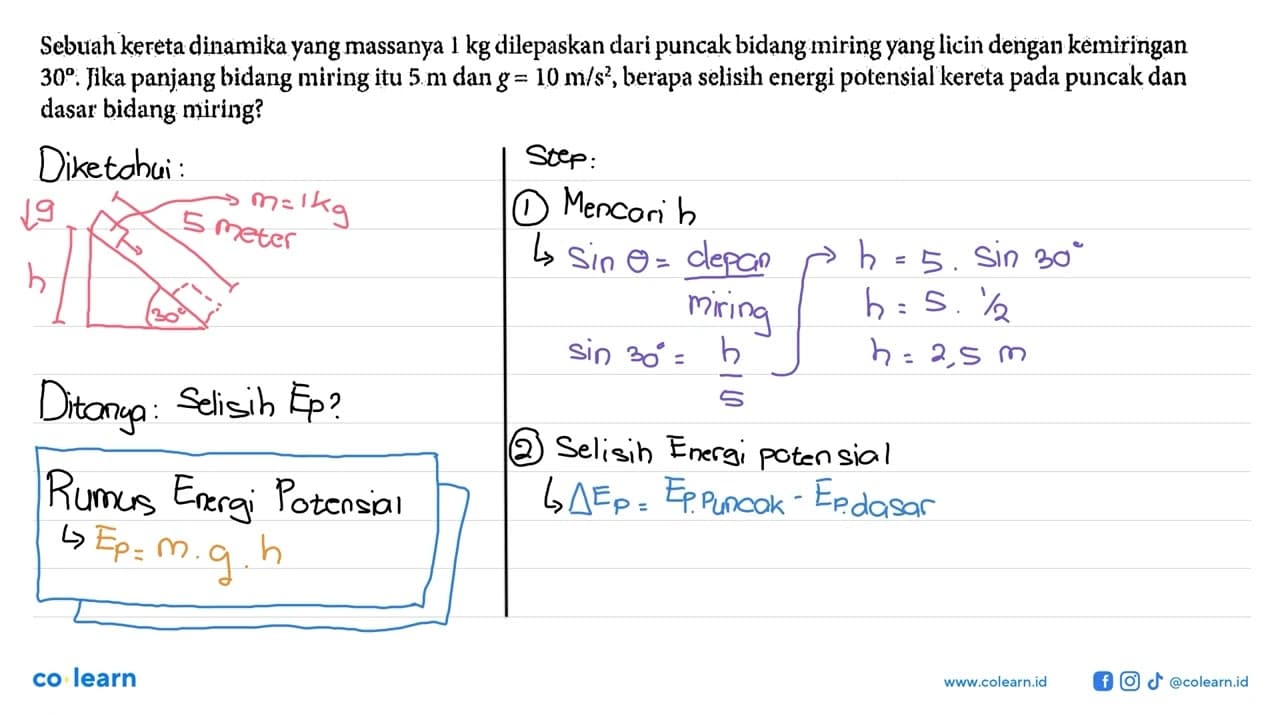 Sebuah kereta dinamika yang massanya 1 kg dilepaskan dari puncak bidang miring yang licin dengan kemiringan
30°. Jika panjang bidang miring itu 5 m dan g = 10 m/s², berapa selisih energi potensial kereta pada puncak dan
dasar bidang miring?
Diketahui:
↓g
m = 1 kg
5 meter
h
30°
Ditanya: Selisih Ep?
Rumus Energi Potensial
↳ Ep = m . g . h
Step:
① Mencari h
↳ Sin θ = depan/miring
sin 30° = h/5
→ h = 5 . Sin 30°
h = 5 . 1/2
h = 2,5 m
② Selisih Energi potensial
↳ ΔEp = Ep.Puncak - Ep.dasar
co learn
www.colearn.id
@colearn.id